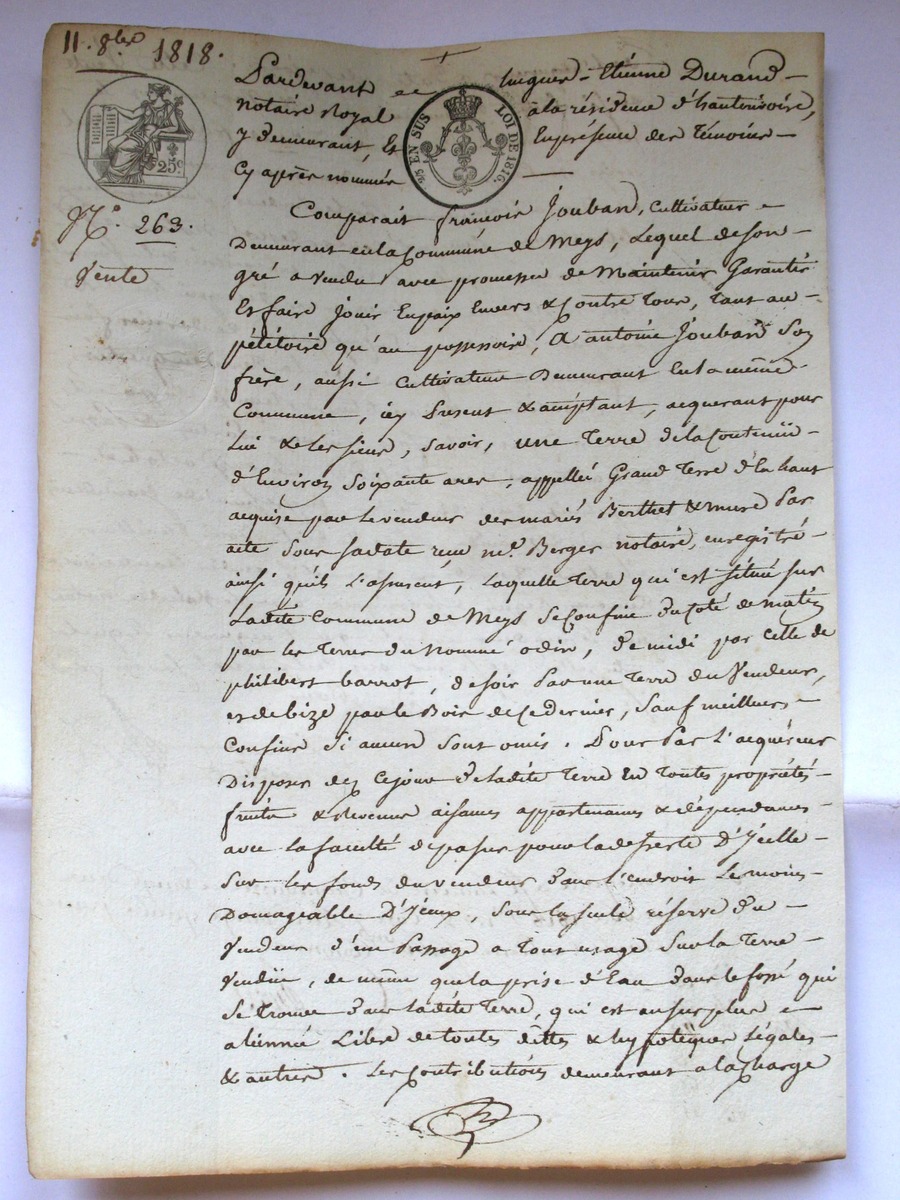 11. 8bre 1818.
25c
N.° 263.
Vente
25 EN SUS LOI DE 1816.
Pardevant Me hugues-Etienne Durand
notaire Royal à la résidence d'hauterivoire,
y demeurant, Et En présence des Témoins
Cy après nommés
Comparait françois Jouban, cultivateur
Demeurant en la Commune de Meys, Lequel de son
gré a vendu avec promesse de Maintenir Garantir
Et faire Jouir En paix Envers & Contre Tous, Tant au
pétitoire qu'au possessoire, A antoine Jouban Son
frère, aussi cultivateur Demeurant En la même
Commune, icy Présent & acceptant, acquérant pour
Lui & les siens, Savoir, une Terre de la Contenüe
d'Environ Soixante ares, appellée Grand Terre d'la haut
acquise par le vendeur des mariés Berthet & mure Par
acte Sous sa date reçu me. Berger notaire, enregistré
ainsi qu'ils L'assurent, Laquelle Terre qui est située sur
Ladite Commune de Meys Se Confine du Coté de matin
par les Terres du Nommé odin, de midi par celle de
philibert barrot, de soir Par une Terre du Vendeur,
et de bize par le Bois de Ce dernier, Sauf meilleurs
Confins Si aucuns Sont omis. Pour Par L'acquéreur
Disposer dez Ce jour de ladite Terre En Toutes propriétés
fruits & revenus aisances appartenances & dépendances
avec la faculté de passer pour la desserte D'Icelle
Sur les fonds du vendeur dans l'endroit Le moins
Domageable D'Iceux, Sous la seule réserve du
Vendeur d'un Passage a Tout usage Sur la Terre
Vendüe, de même que la prise d'Eau dans le fossé qui
Se Trouve dans ladite Terre, qui est au surplus
aliennée Libre de toutes dettes & hypotèques Légales
& autres. Les Contributions demeurant a la Charge